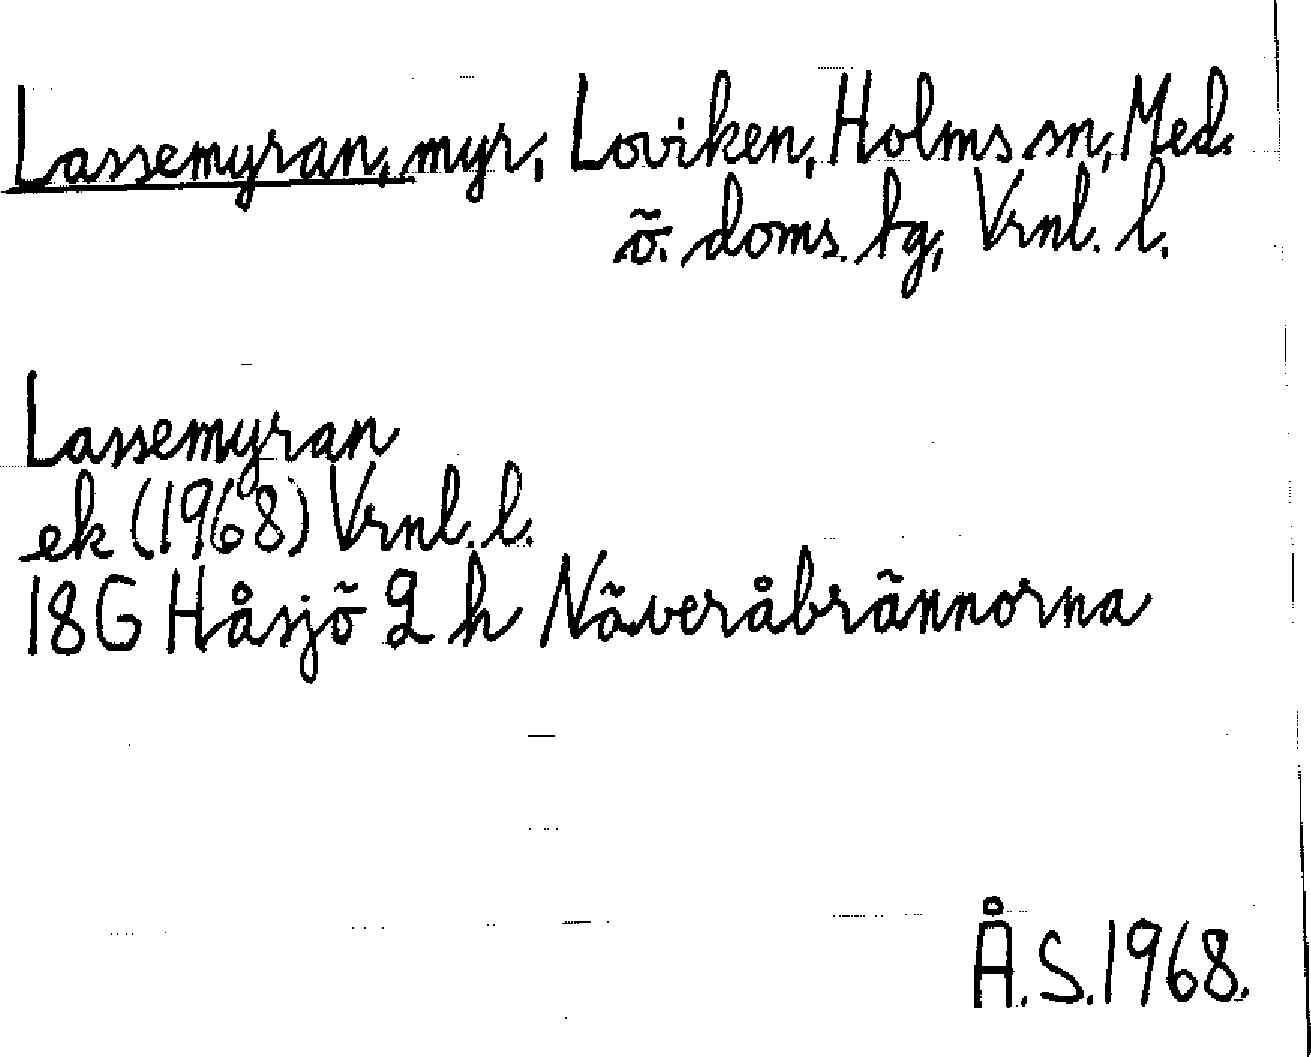 Lassemyran, myr, Loviken, Holms sn, Med.
ö. doms. lg, Vrnl. l.
Lassemyran
ek (1968) Vrnl. l.
18G Håsjö 2 h Näveråbrännorna
Å.S. 1968.